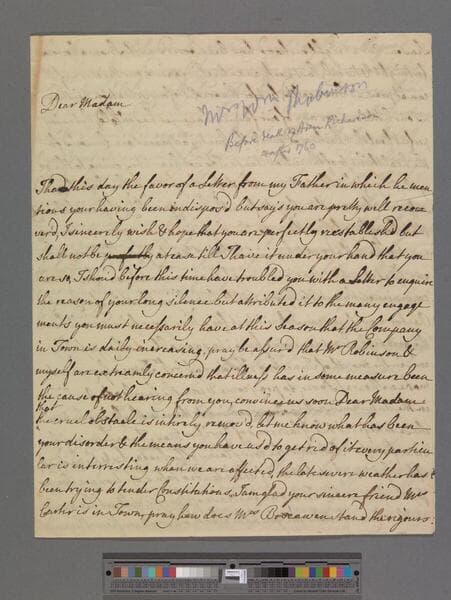 Dear Madam
Before death of
1760
I had this day the favor of a Letter from my Father in which he men
tions your having been indispos'd but says you are pretty well recov
er'd, I sincerely wish & hope that you are perfectly reestablish'd but
shall not be perfectly at ease till I have it under your hand that you
are so, I shou'd before this time have troubled you with a Letter to enquire
the reason of your long silence but attributed it to the many engage
ments you must necessarily have at this Season that the Company
in Town is daily increasing, pray be assur'd that Mr Robinson &
myself are extramly concern'd that illness has in some measure been
the cause of not hearing from you, convince us soon Dear Madam
that
the cruel obstacle is intirely remov'd, let me know what has been
your disorder & the means you have us'd to get rid of it every particu
lar is interristing when we are affected, the late severe weather has
been trying to tender Constitutions, I am glad your sincere friend Mrs
Carter is in Town, pray how does Mrs Boscawen stand the rigours